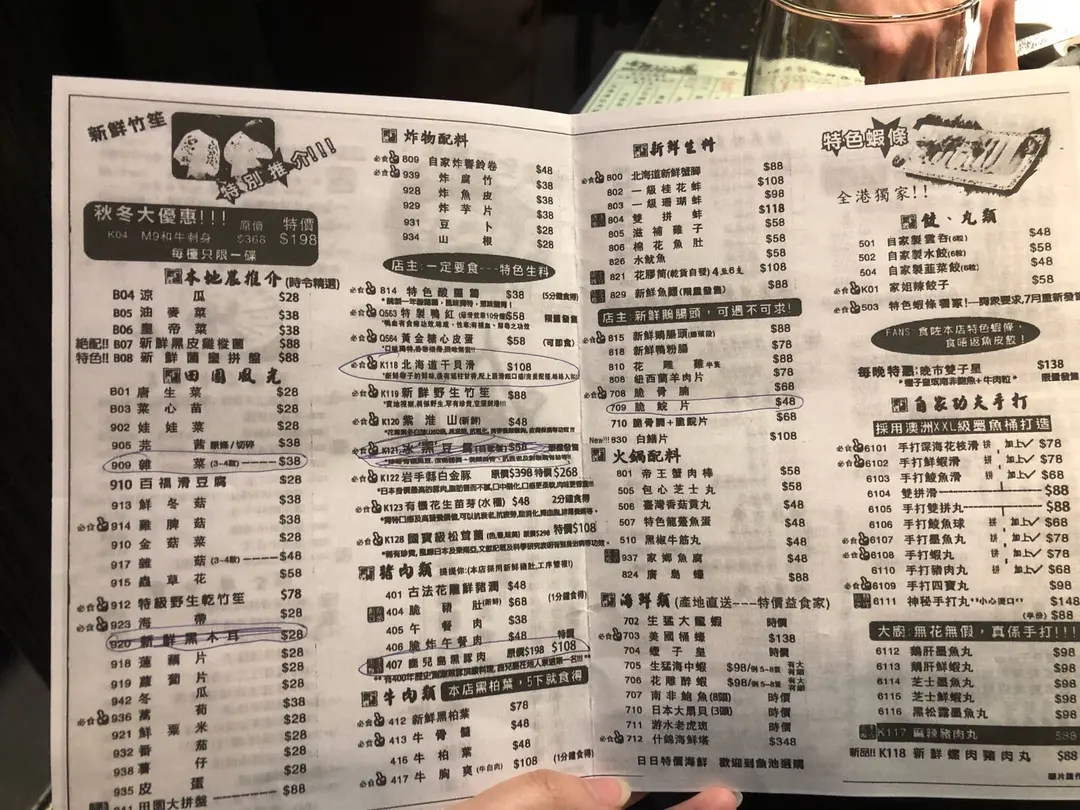 新鮮竹笙
特別推介!!!
秋冬大優惠!!! 原價 特價
K04 M9和牛刺身 $368 $198
每檯只限一碟
本地農推介(時令精選)
B04 涼瓜 $28
B05 油麥菜 $38
B06 皇帝菜 $38
絕配!! B07 新鮮黑皮雞樅菌 $88
特色!! B08 新鮮菌皇拼盤 $88
田園風光
B01 唐生菜 $28
B03 菜心苗 $28
902 娃娃菜 $28
905 芫茜 原條/切碎 $38
909 雜菜(3-4款) $38
910 百福滑豆腐 $28
913 鮮冬菇 $38
必食 914 雞脾菇 $38
910 金菇菜 $28
917 雜菇(3-4款) $48
915 蟲草花 $58
必食 912 特級野生乾竹笙 $78
必食 923 海帶 $28
920 新鮮黑木耳 $28
918 蓮藕片 $28
919 蘿蔔片 $28
942 冬瓜 $28
必食 936 萵荀 $38
921 鮮粟米 $28
932 番茄 $28
938 薯仔 $28
935 皮蛋 $28
941 田園大拼盤 $88
炸物配料
必食 809 自家炸響鈴卷 $48
必食 939 炸腐竹 $38
928 炸魚皮 $38
929 炸芋片 $38
931 豆卜 $28
934 山根 $28
店主:一定要食---特色生料
必食 814 特色酸薑蕎 $38 (5分鐘食得)
Q563 特製鴨紅 $58 限量發售
Q564 黃金糖心皮蛋 $58 (可即食)
必食 K118 北海道干貝滑 $108
必食 K119 新鮮野生竹笙 $88
必食 K120 紫淮山(新鮮) $48
必食 K121 水黑豆腐 $58 限量發售
必食 K122 岩手縣白金豚 原價$398 特價$268
必食 K123 有機花生苗芽(水種) $48 2分鐘食得
必食 K128 國寶級松茸菌 原價$298 特價$108
豬肉類 提提你:(本店採用新鮮豬肚,工序雙檢!)
401 古法花雕鮮豬潤 $48
404 脆豬肚(新鮮) $68 (1分鐘食得)
405 午餐肉 $38
406 脆炸午餐肉 $48
407 鹿兒島黑豚肉 原價$198 特價 $108
牛肉類 本店黑柏葉,5下就食得
必食 412 新鮮黑柏葉 $78
必食 413 牛骨髓 $48
416 牛柏葉 $48
必食 417 牛胸爽(牛白肉) $108 (1分鐘食得)
新鮮生料
必食 800 北海道新鮮蟹腳 $88
802 一級桂花蚌 $108
803 一級珊瑚蚌 $98
804 雙拼蚌 $118
805 滋補雞子 $58
806 棉花魚肚 $58
826 水魷魚 $58
821 花膠筒(乾貨自發)4至6支 $108
829 新鮮魚鰾(限量發售) $88
店主:新鮮鵝腸頭,可遇不可求!
必食 815 新鮮鵝腸頭 $88
818 新鮮鴨粉腸 $78
810 花雞 半隻 $88
808 紐西蘭羊肉片 $78
必食 708 脆骨腩 $68
709 脆鯇片 $48
710 脆骨腩+脆鯇片 $68
New!!! 930 白鱔片 $108
火鍋配料
801 帝王蟹肉棒 $58
505 包心芝士丸 $58
506 臺灣香菇貢丸 $48
507 特色龍躉魚蛋 $48
510 黑椒牛筋丸 $48
937 家鄉魚腐 $48
824 廣島蠔 $88
海鮮類(產地直送---特價益食家)
702 生猛大龍蝦 時價
必食 703 美國桶蠔 $138
704 蟶子皇 時價
705 生猛海中蝦 $98/例 5-8隻 有大有細
706 花雕醉蝦 $98/例 5-8隻 有大有細
707 南非鮑魚(8頭) 時價
710 日本大扇貝(3頭) 時價
711 游水老虎斑 時價
必食 712 什錦海鮮塔 $348
日日特價海鮮 歡迎到魚池選購
特色蝦條
全港獨家!!
餃、丸類
501 自家製雲吞(6粒) $48
502 自家製水餃(6粒) $58
504 自家製韮菜餃(6粒) $48
必食 K01 家姐辣餃子 $58
必食 503 特色蝦條獨家!---
FANS:食咗本店特色蝦條,
食唔返魚皮餃!
每晚特惠:晚市雙子星 $138
限量發售
自家功夫手打
採用澳洲XXL級墨魚桶打造
必食 6101 手打深海花枝滑 拼 加上 $78
必食 6102 手打鮮蝦滑 拼 加上 $78
6103 手打鯪魚滑 拼 加上 $68
6104 雙拼滑 $88
6105 手打雙拼丸 $88
6106 手打鯪魚球 拼 加上 $68
必食 6107 手打墨魚丸 拼 加上 $78
必食 6108 手打蝦丸 拼 加上 $78
6110 手打豬肉丸 拼 加上 $68
必食 6109 手打四寶丸 $98
6111 神秘手打丸 **小心燙口** $148
(半份) $88
大廚:無花無假,真係手打!!!
6112 鵝肝墨魚丸 $98
6113 鵝肝鮮蝦丸 $98
6114 芝士墨魚丸 $98
6115 芝士鮮蝦丸 $98
6116 黑松露墨魚丸 $98
K117 麻辣豬肉丸 $88
新品!! K118 新鮮螺肉豬肉丸 $88